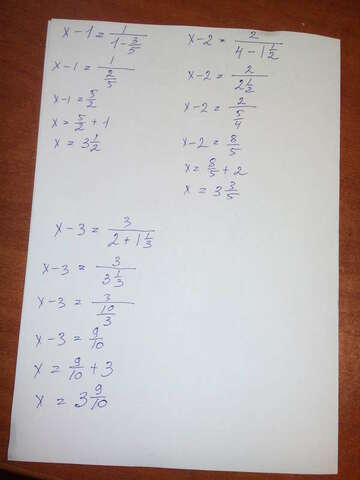 x - 1 = 1/(1 - 3/5)
x - 1 = 1/(2/5)
x - 1 = 5/2
x = 5/2 + 1
x = 3 1/2
x - 2 = 2/(4 - 1 1/2)
x - 2 = 2/(2 1/2)
x - 2 = 2/(5/4)
x - 2 = 8/5
x = 8/5 + 2
x = 3 3/5
x - 3 = 3/(2 + 1 1/3)
x - 3 = 3/(3 1/3)
x - 3 = 3/(10/3)
x - 3 = 9/10
x = 9/10 + 3
x = 3 9/10